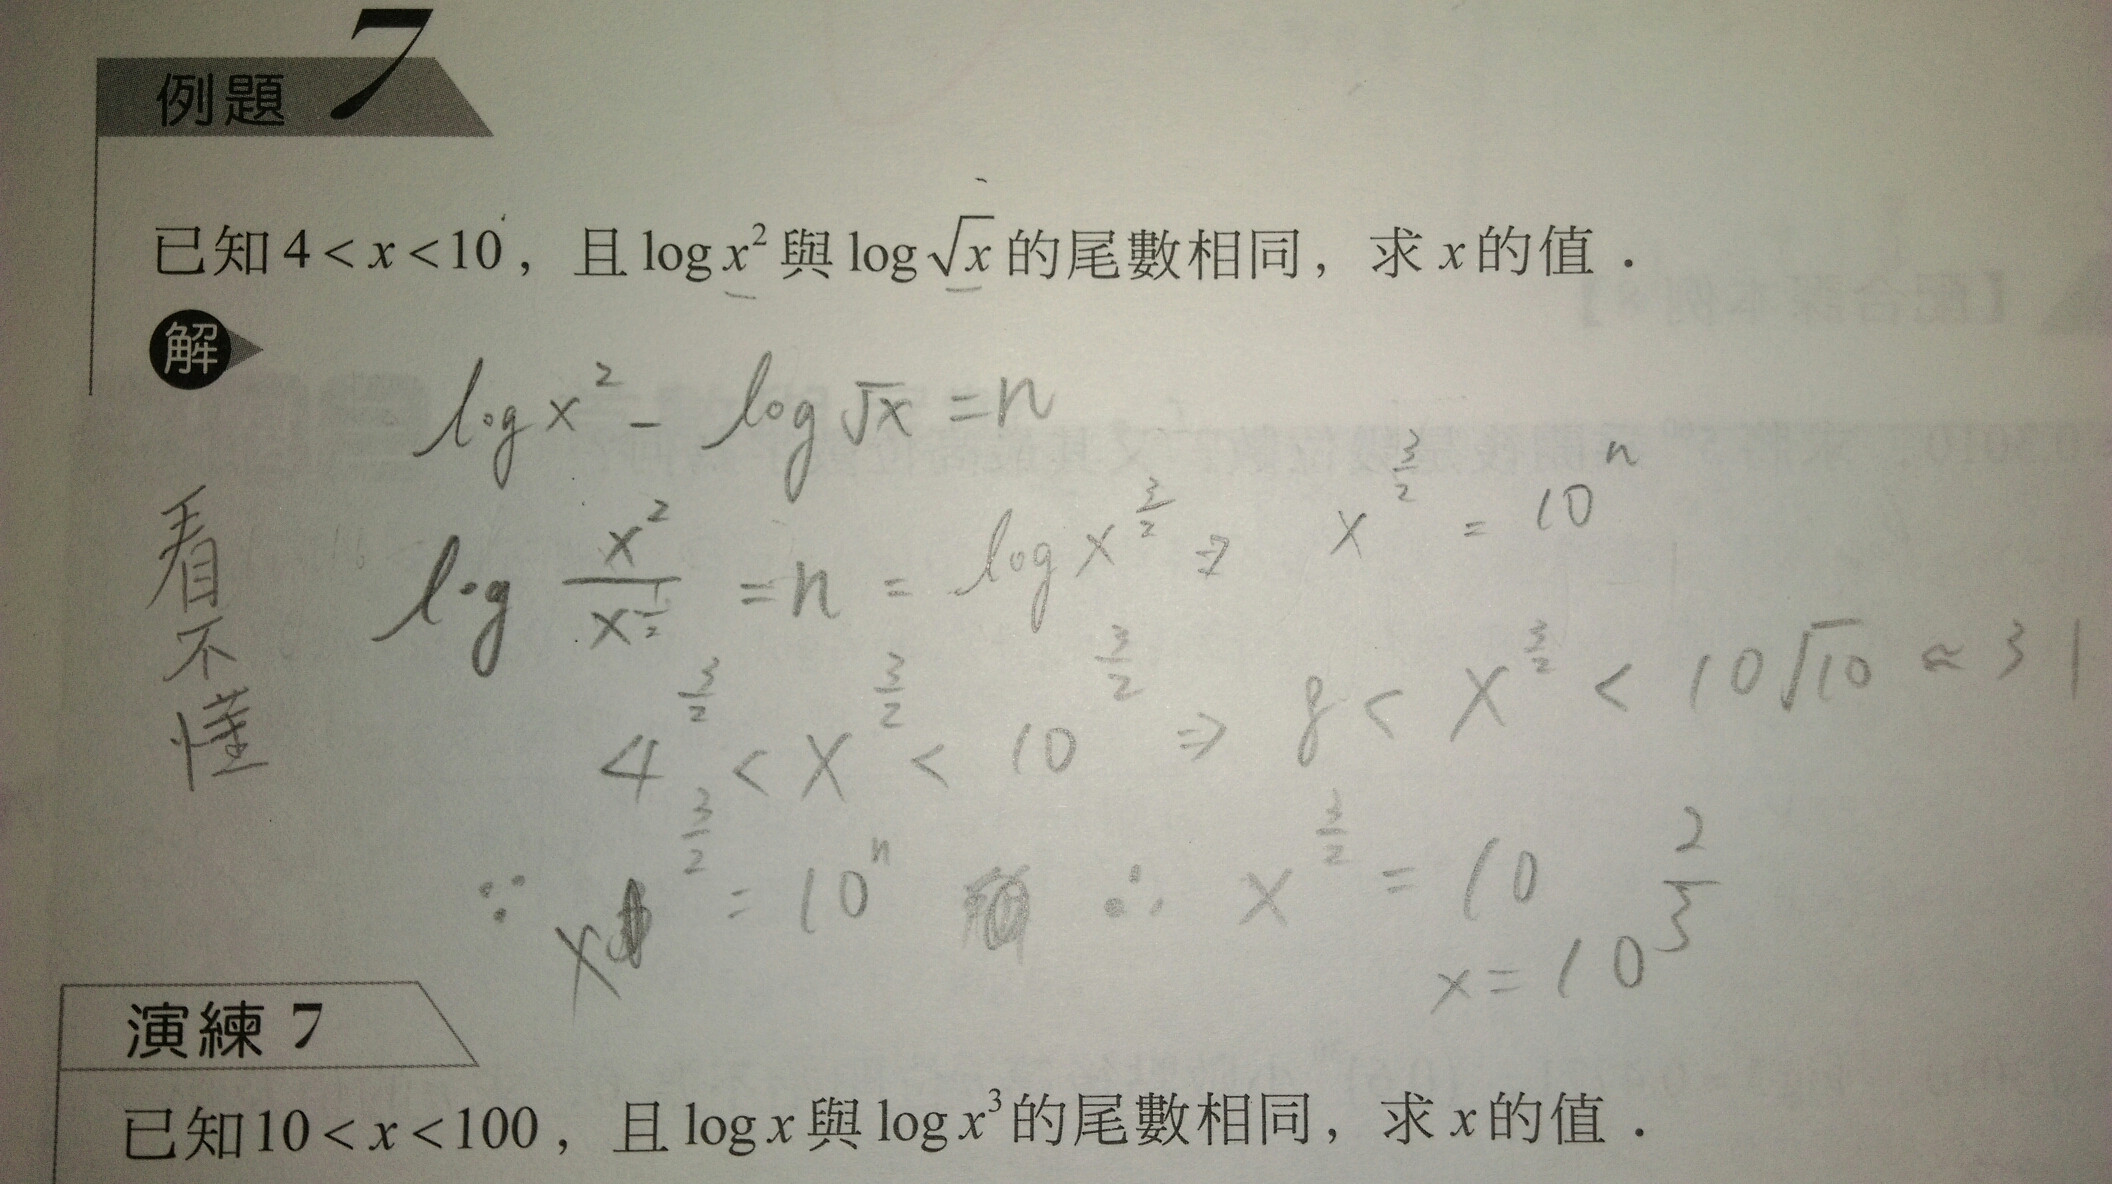 例題 7
已知 4 < x < 10，且 log x² 與 log √x 的尾數相同，求 x 的值．
解
log x² - log √x = n
看不懂
log x²/x^(1/2) = n = log x^(3/2) ⇒ x^(3/2) = 10^n
4^(3/2) < x^(3/2) < 10^(3/2) ⇒ 8 < x^(3/2) < 10√10 ≈ 31
∵ x^(3/2) = 10^n ∴ x^(3/2) = 10
x = 10^(2/3)
演練 7
已知 10 < x < 100，且 log x 與 log x³ 的尾數相同，求 x 的值．